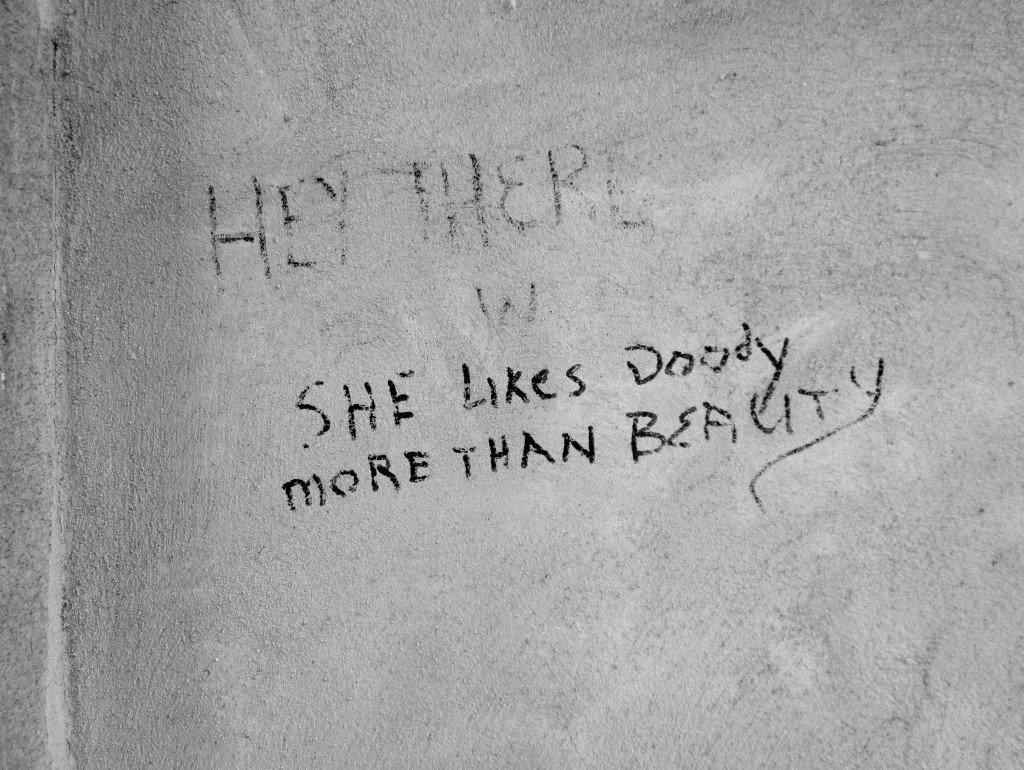 HEY THERE
W
SHE LIKES DOODY
MORE THAN BEAUTY